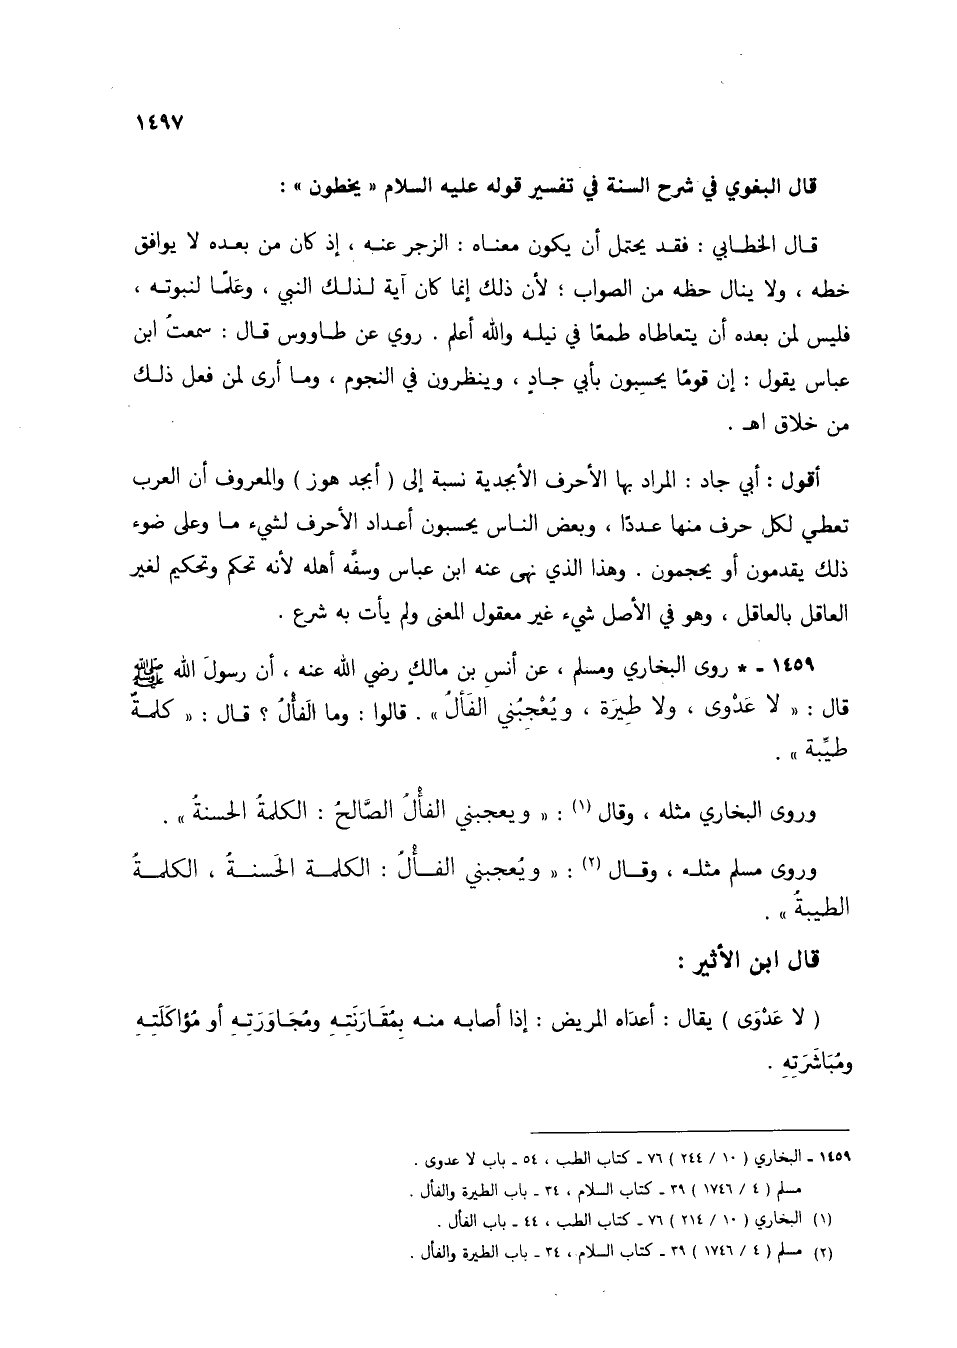 ١٤٩٧
قال البغوي في شرح السنة في تفسير قوله عليه السلام « يخطون » :
قـال الخطـابي : فقـد يحتمل أن يكون معنـاه : الزجر عنـه ، إذ كان من بعـده لا يوافق
خطه ، ولا ينال حظه من الصواب ؛ لأن ذلك إنما كان آية لـذلـك النبي ، وعَلَمًا لنبوتـه ،
فليس لمن بعده أن يتعاطاه طمعًا في نيلـه والله أعلم . روي عن طـاووس قـال : سمعتُ ابن
عباس يقول : إن قومًا يحسِبون بأبي جـادٍ ، وينظرون في النجوم ، ومـا أرى لمن فعل ذلـك
من خلاق اهـ .
أقول : أبي جاد : المراد بها الأحرف الأبجدية نسبة إلى ( أبجد هوز ) والمعروف أن العرب
تعطي لكل حرف منها عـددًا ، وبعض النـاس يحسبون أعـداد الأحرف لشيء مـا وعلى ضوء
ذلك يقدمون أو يحجمون . وهذا الذي نهى عنه ابن عباس وسفَّه أهله لأنه تحكم وتحكيم لغير
العاقل بالعاقل ، وهو في الأصل شيء غير معقول المعنى ولم يأت به شرع .
١٤٥٩ - * روى البخاري ومسلم ، عن أنسِ بن مالكٍ رضي الله عنه ، أن رسولَ الله ﷺ
قال : « لا عَدْوى ، ولا طِيَرَة ، ويُعْجِبُني الفَألُ » . قالوا : وما الفَألُ ؟ قـال : « كلمـةٌ
طيِّبة » .
وروى البخاري مثله ، وقال (١) : « ويعجبني الفأْلُ الصَّالحُ : الكلمةُ الحسنةُ » .
وروى مسلم مثلـه ، وقـال (٢) : « ويُعجبني الفـألُ : الكلمـة الحَسنـةُ ، الكلمـةُ
الطيبةُ » .
قال ابن الأثير :
( لا عَدْوَى ) يقال : أعدَاه المريض : إذا أصابـه منـه بِمُقـارَنَتِـهِ ومُجَـاوَرَتِـهِ أو مُؤاكَلَتِـهِ
ومُبَاشَرَتِهِ .
١٤٥٩ - البخاري ( ١٠ / ٢٤٤ ) ٧٦ - كتاب الطب ، ٥٤ - باب لا عدوى .
مسلم ( ٤ / ١٧٤٦ ) ٣٩ - كتاب السلام ، ٣٤ - باب الطيرة والفأل .
(١) البخاري ( ١٠ / ٢١٤ ) ٧٦ - كتاب الطب ، ٤٤ - باب الفأل .
(٢) مسلم ( ٤ / ١٧٤٦ ) ٣٩ - كتاب السلام ، ٣٤ - باب الطيرة والفأل .